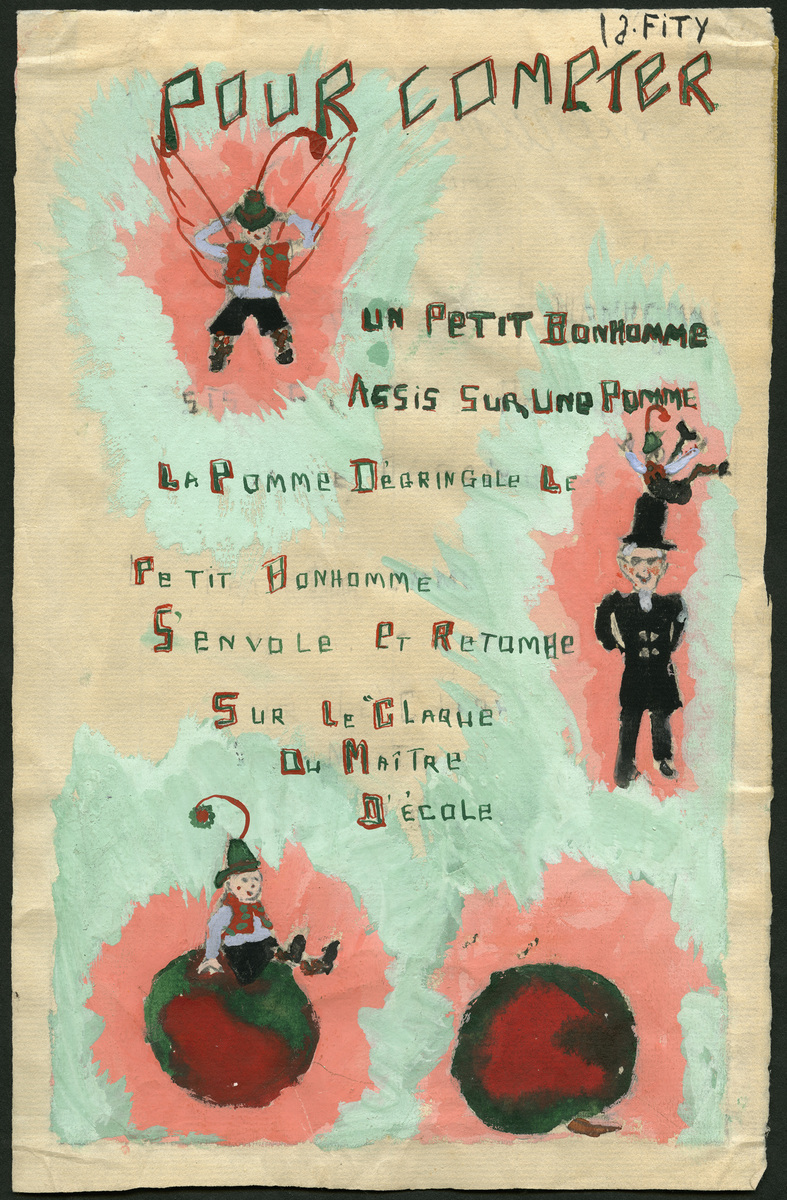 12. FiTY
POUR COMPTER
UN PETIT BONHOMME
ASSIS SUR UNE POMME
LA POMME DÉGRINGOLE LE
PETIT BONHOMME
S'ENVOLE ET RETOMBE
SUR LE "CLAQUE
DU MAÎTRE
D'ÉCOLE